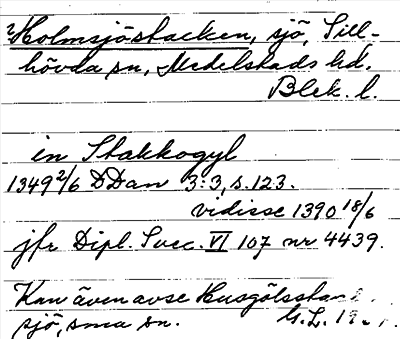 ?Holmsjöstacken, sjö, Till-
hövda sn, Medelstads hd.
Blek. l.
in Stakkogyl
1349 2/6 DDan 3:3, s. 123.
vidisse 1390 18/6
jfr Dipl. Suec. VI 107 nr 4439.
Kan även avse
sjö, sma sn. G.L.